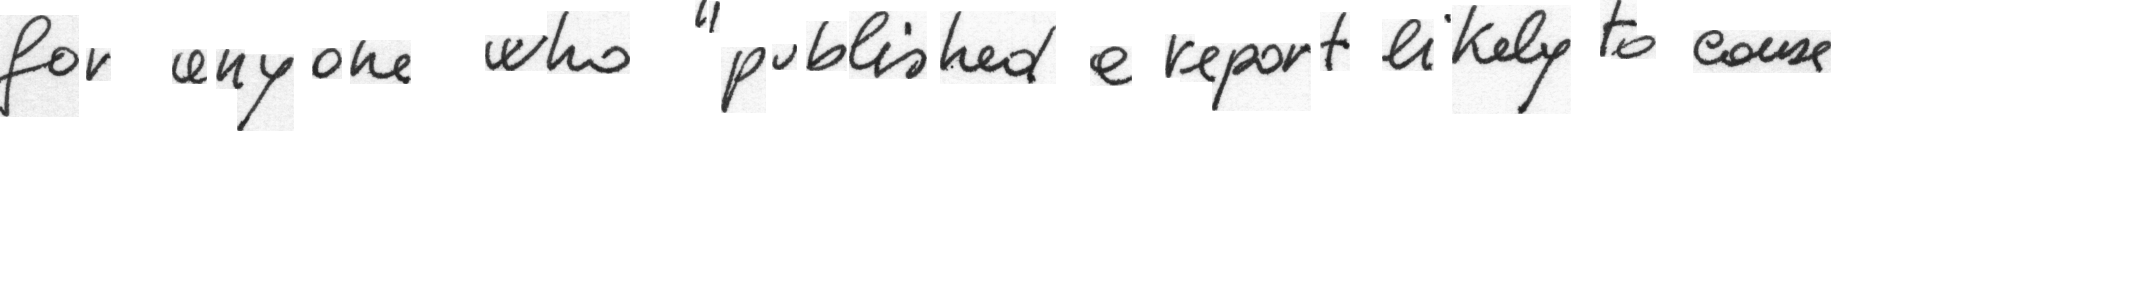 for anyone who "published a report likely to cause